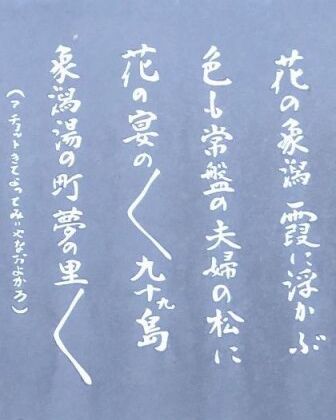 花の象潟 霞に浮かぶ
色も常盤の夫婦の松に
花の宴の〱九十九島
象潟湯の町夢の里〱
(アチョットきてよってみいやなおよかろ)